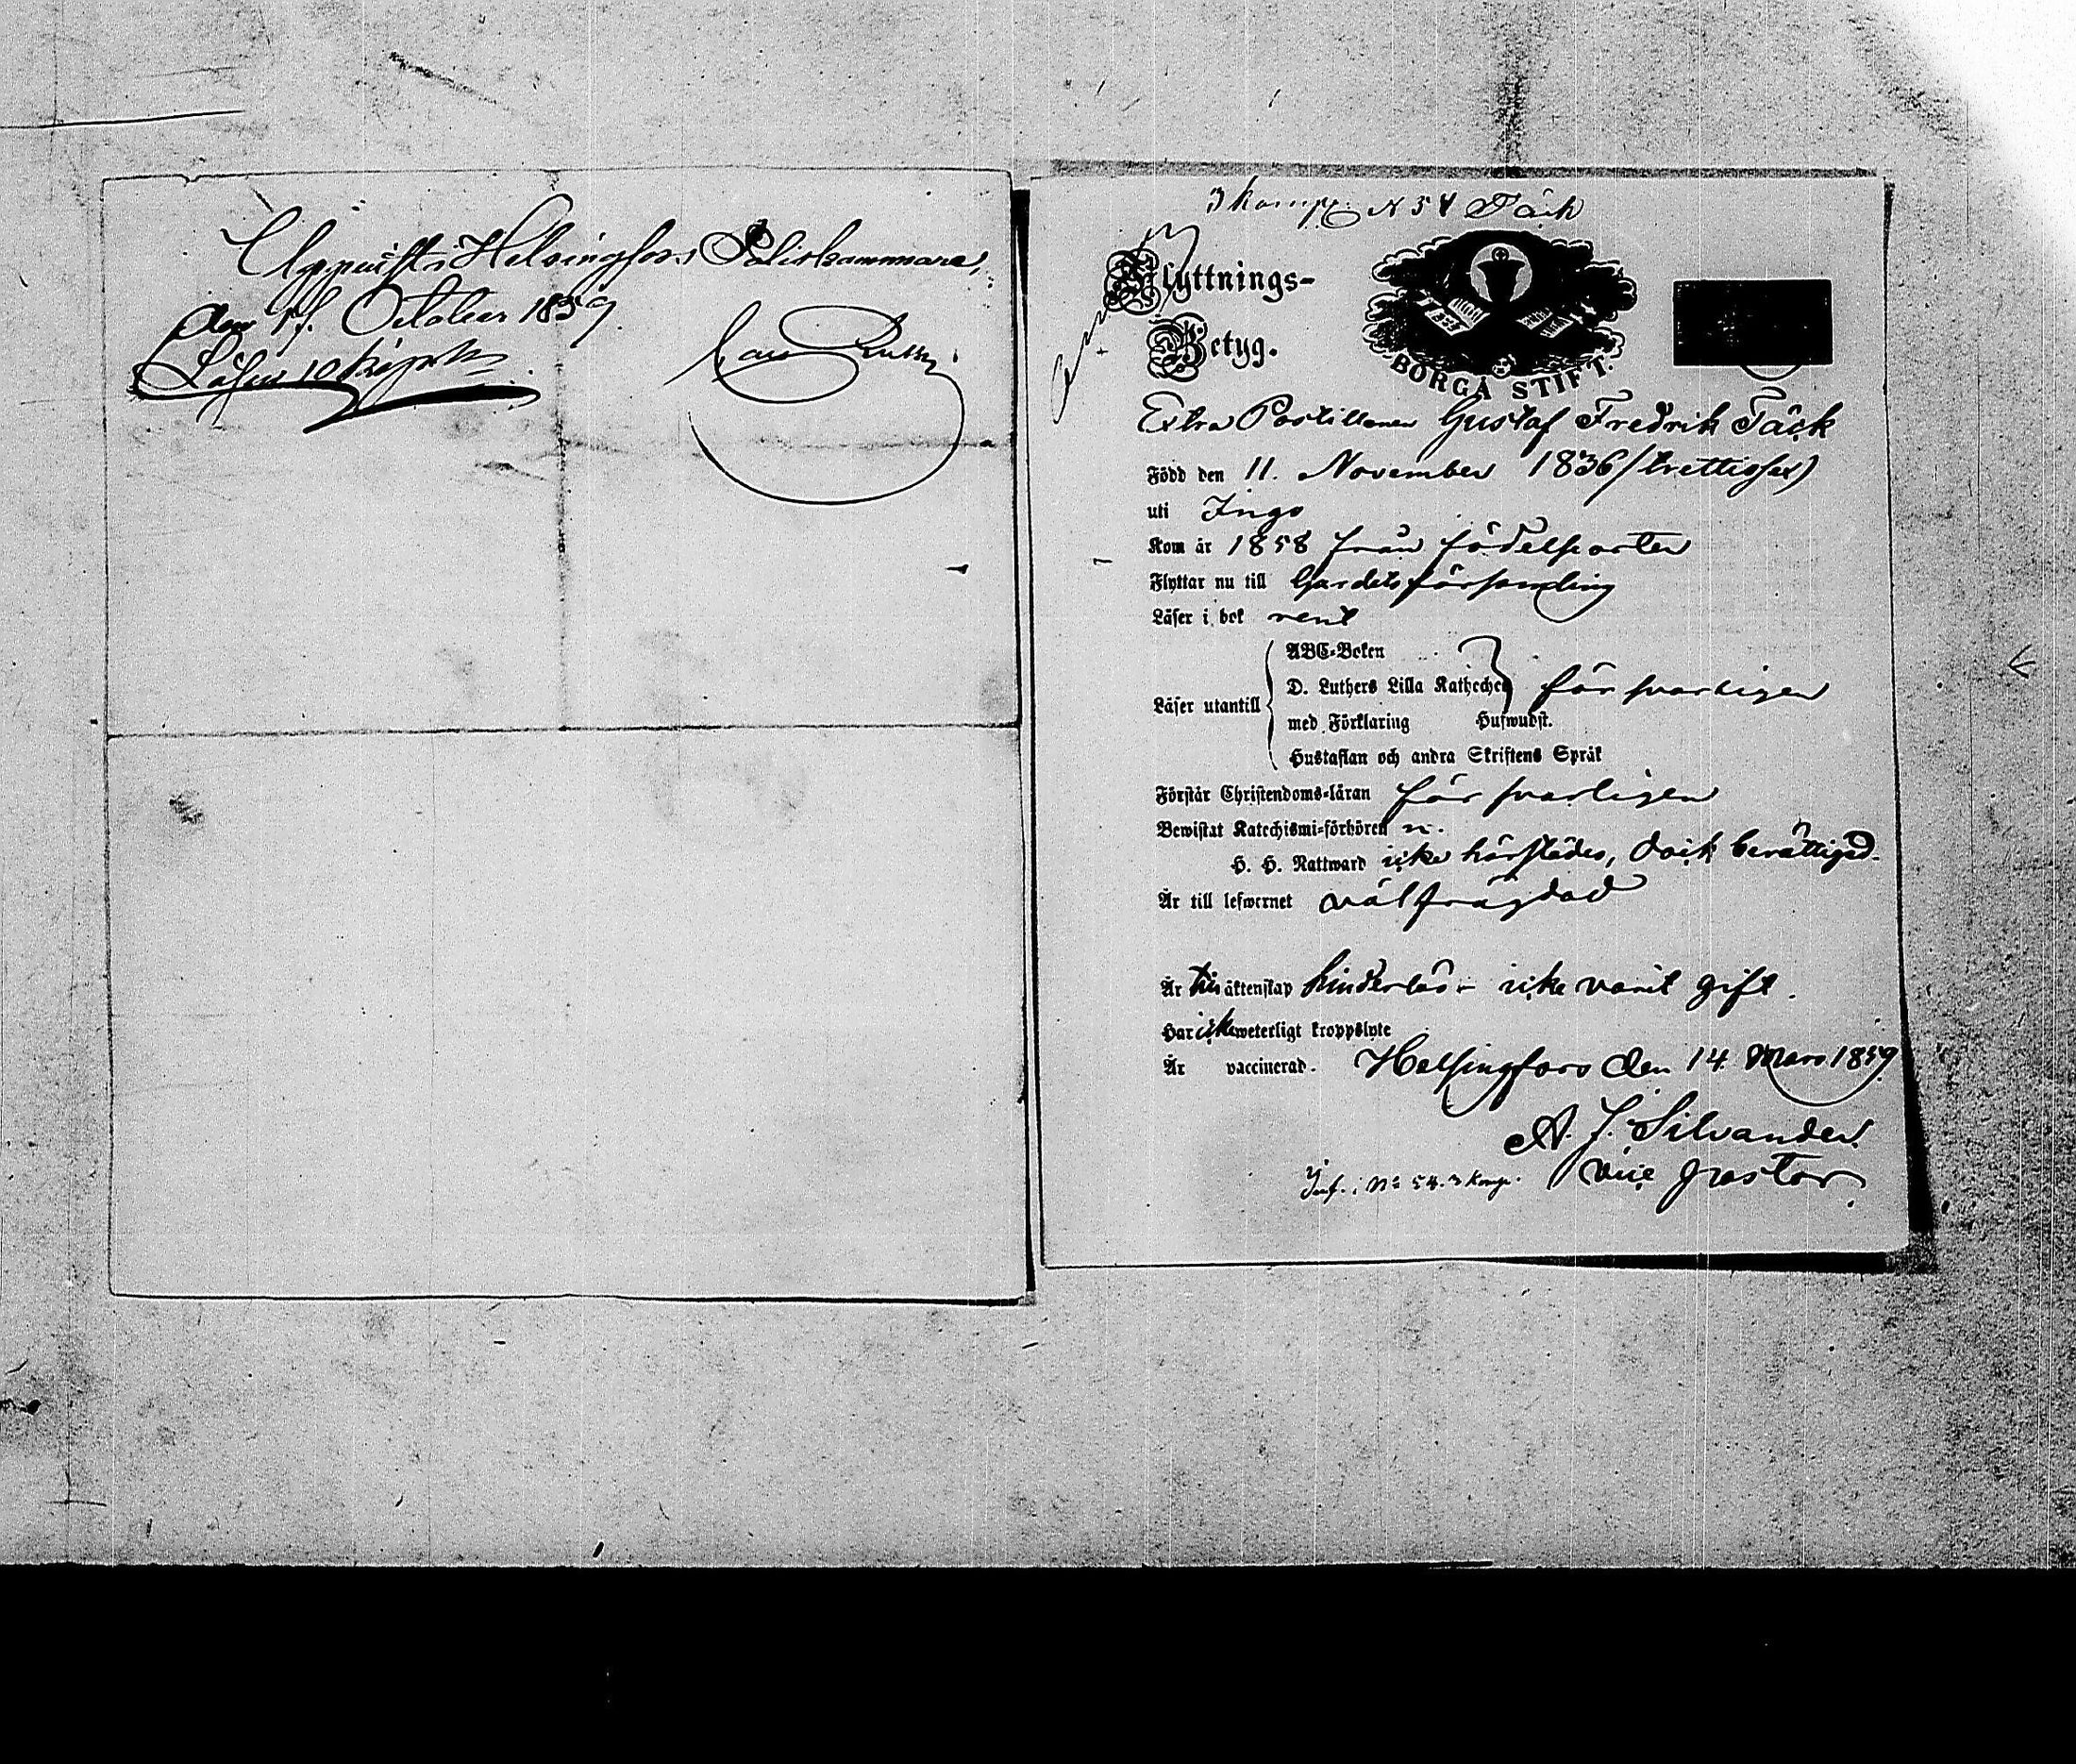 Uppvist i Helsingfors Poliskammare,
den 17. October 1859
Lösen 10 kopek
3 komp. N 54 Täck
Flyttnings-
Betyg.
BORGÅ STIFT.
Extra Postillonen Gustaf Fredrik Täck
Född den 11. November 1836 (trettiosex)
uti Ingo
Kom år 1858 från födelseorten
Flyttar nu till Gardetsförsamling
Läser i bok rent
ABC-Boken
D. Luthers Lilla Kateches försvarligen
Läser utantill
med Förklaring Huswudst.
Hustaflan och andra Skriftens Språk
Förstår Christendoms-läran försvarligen
Bewistat Katechismi-förhören n.
H. H. Nattward icke härstädes, dock berättigad.
Är till lefwernet välfrägdad
Är till äktenskap hinderlös – icke varit gift.
Har icke weterligt kroppslyte
Är vaccinerad. Helsingfors den 14. Mars 1859.
A. J. Silvander.
Vice pastor.
Inf. i No 54. 3 komp.